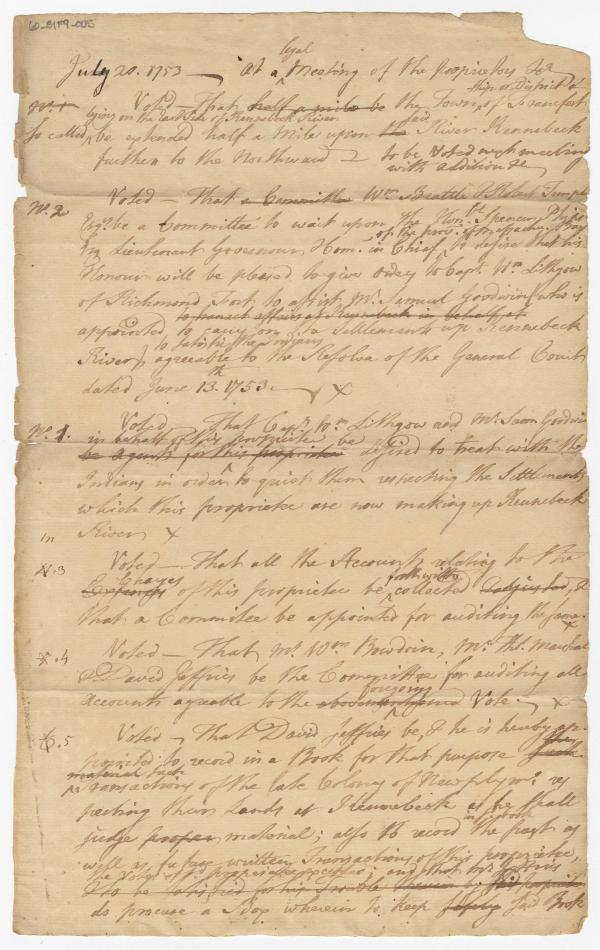 60_81F9_005
legal
July 20. 1753 — At a Meeting of the Proprietors &ca
Ship or District of
No. 1 Voted — That half a mile be the Town of Francfort
lying on the East Side of Kennebeck River
said
So called be extended half a Mile upon the River Kennebeck
further to the Northward — to be Voted
with addition &c
No. 2 Voted — That a Committee Wm Brattle & Robert Temple
Esqr. be a Committee to wait upon the Honble Spencer Phips
of the prov. of the Massachu Bay
Esq Lieutenant Governour & Com. in Chief to desire that his
Honour will be pleased to give orders to Capt. Wm Lithgow
of Richmond Fort to assist Mr. Samuel Goodwin who is
to transact affairs at Kennebeck in behalf of
appointed to carry on a Settlement up Kennebeck
to satisfie the Indians
River, agreeable to the Resolve of the General Court
dated June 13th. 1753. — x
No. 1. Voted That Capt. Wm Lithgow and Mr. Sam Goodwin
in behalf of this proprietee be
be agents for this proprietee desired to treat with the
Indians in order to quiet them respecting the Settlements
which this proprietee are now making up Kennebeck
River x
3 Voted — That all the Accounts relating to the
Charges forthwith
Expences of this proprietee be collected & adjusted, &
that a Committee be appointed for auditing the same.
x
4 Voted — That Mr. Wm Bowdoin, Mr. Ths. Marshal
& David Jeffries be the Committee for auditing all
foregoing
accounts agreeable to the abovementioned Vote. x
5 Voted, That David Jeffries be, & he is hereby ap-
pointed to record in a Book for that purpose such
material such
Transactions of the late Colony of New plymo. res
pecting their Lands at Kennebeck as he shall
in a book
judge proper material; also to record the past as
well as future written Transactions of this proprietee,
& to be satisfied for his Trouble therein by said proprietee
do procure a Box wherein to keep said Book